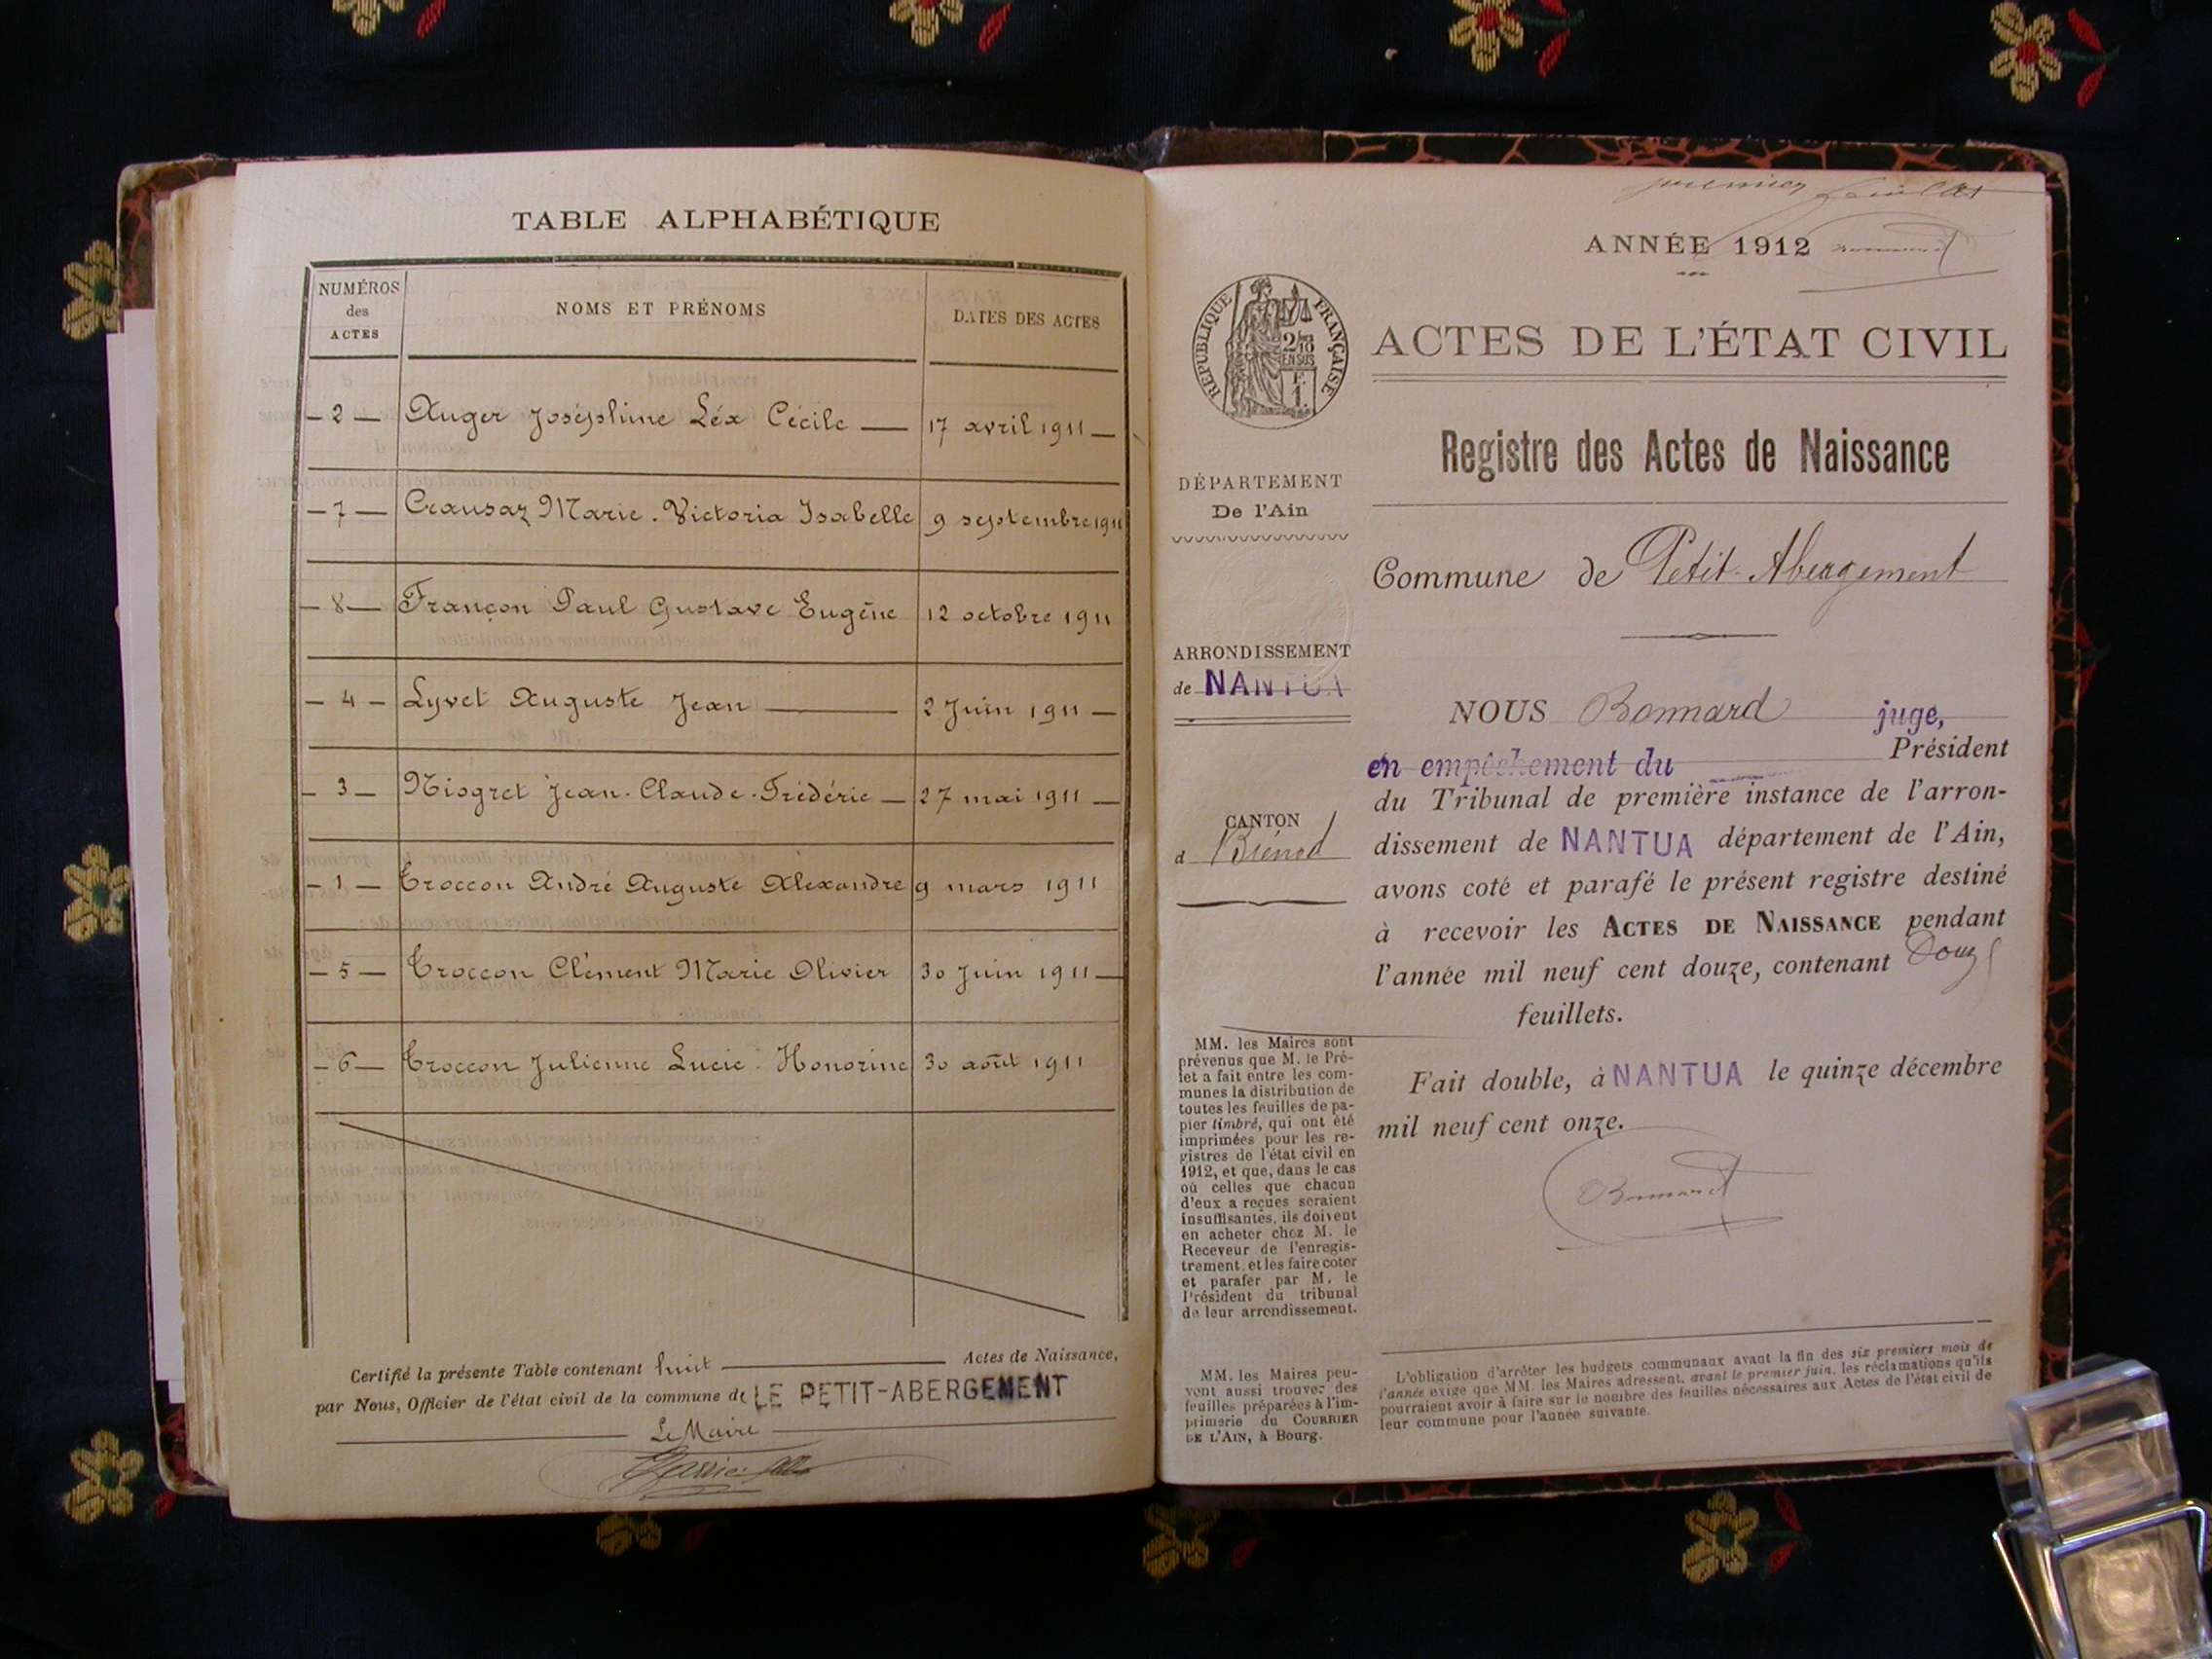 TABLE ALPHABÉTIQUE
NUMÉROS
des
ACTES
NOMS ET PRÉNOMS
DATES DES ACTES
- 2 - Auger Joséphine Léa Cécile — 17 avril 1911 —
- 7 - Crausaz Marie-Victoria Isabelle 9 septembre 1911
- 8 - Françon Paul Gustave Eugène 12 octobre 1911
- 4 - Lyvet Auguste Jean — 2 Juin 1911 —
- 3 - Niogret Jean-Claude-Frédéric — 27 mai 1911 —
- 1 - Troccon André Auguste Alexandre 9 mars 1911
- 5 - Troccon Clément Marie Olivier 30 Juin 1911 —
- 6 - Troccon Julienne Lucie-Honorine 30 août 1911
Certifié la présente Table contenant huit — Actes de Naissance,
par Nous, Officier de l'état civil de la commune de LE PETIT-ABERGEMENT
Le Maire
premier feuillet
ANNÉE 1912
RÉPUBLIQUE FRANÇAISE
2/10
EN SUS
F.
1.
ACTES DE L'ÉTAT CIVIL
Registre des Actes de Naissance
DÉPARTEMENT
De l'Ain
Commune de Petit-Abergement
ARRONDISSEMENT
de NANTUA
CANTON
d Brénod
NOUS Bonnard juge,
en empêchement du Président
du Tribunal de première instance de l'arron-
dissement de NANTUA département de l'Ain,
avons coté et parafé le présent registre destiné
à recevoir les ACTES DE NAISSANCE pendant
l'année mil neuf cent douze, contenant Douze
feuillets.
Fait double, à NANTUA le quinze décembre
mil neuf cent onze.
Bonnard
MM. les Maires sont
prévenus que M. le Pré-
fet a fait entre les com-
munes la distribution de
toutes les feuilles de pa-
pier timbré, qui ont été
imprimées pour les re-
gistres de l'état civil en
1912, et que, dans le cas
où celles que chacun
d'eux a reçues seraient
insuffisantes, ils doivent
en acheter chez M. le
Receveur de l'enregis-
trement, et les faire coter
et parafer par M. le
Président du tribunal
de leur arrondissement.
MM. les Maires peu-
vent aussi trouver des
feuilles préparées à l'im-
primerie du COURRIER
DE L'AIN, à Bourg.
L'obligation d'arrêter les budgets communaux avant la fin des six premiers mois de
l'année exige que MM. les Maires adressent, avant le premier juin, les réclamations qu'ils
pourraient avoir à faire sur le nombre des feuilles nécessaires aux Actes de l'état civil de
leur commune pour l'année suivante.